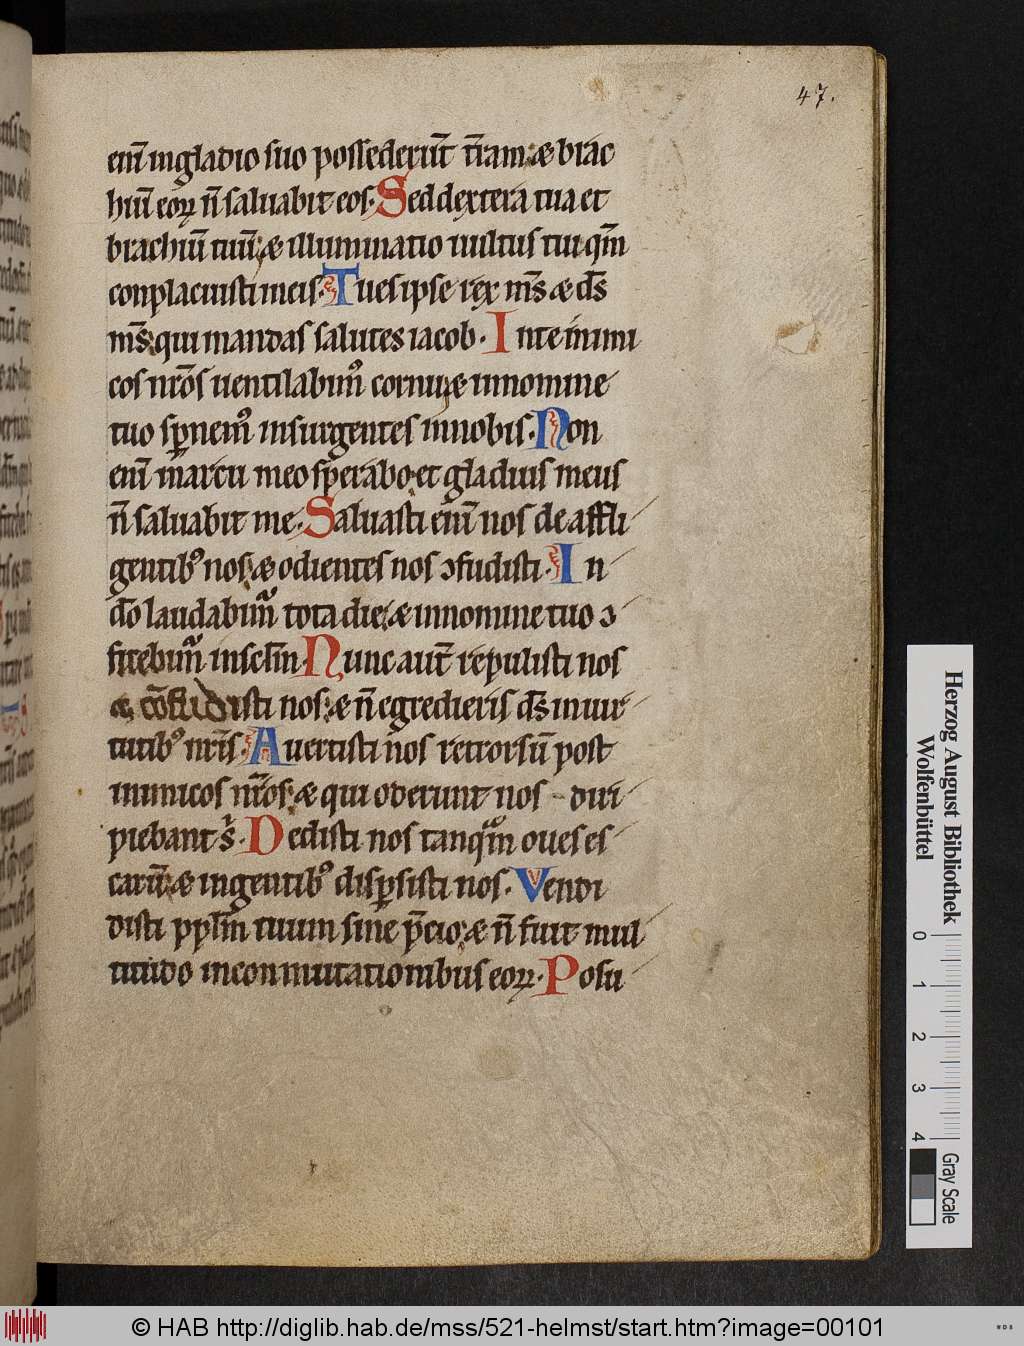 47.
eni᷒m in gladio suo possederūt t̄ram· & brac
hiū eoꝝ n̄ saluabit eos· Sed dextera tua et
brachiū tuū· & illuminatio uultus tui qm̄
conplacuisti in eis· Tu es ipse rex m̄s & d̄s
m̄s· qui mandas salutes iacob· In te inimi
cos nr̄os uentilabimꝰ cornu· & in nomine
tuo sp̄nemꝰ insurgentes in nobis· Non
enī in arcu meo sperabo· et gladius meus
n̄ saluabit me· Saluasti enī nos de affli
gentibꝰ nos· & odientes nos ꝯfudisti· In
do laudabimꝰ tota die· & in nomine tuo ꝯ
fitebimꝰ in sclm̄· Nunc aut̄ repulisti nos
& cōfudisti nos· & n̄ egredieris d̄s in uir
tutibꝰ nr̄is· Auertisti nos retrorsū post
inimicos nr̄os· & qui oderunt nos diri
piebant s̄· Dedisti nos tanqm̄ oues es
carū· & in gentibꝰ disp̄sisti nos· Vendi
disti pplm̄ tuum sine p̄cio· & n̄ fuit mul
titudo in conmutationibus eoꝝ· Posu
Herzog August Bibliothek
Wolfenbüttel
0 1 2 3 4
Gray Scale
© HAB http://diglib.hab.de/mss/521-helmst/start.htm?image=00101